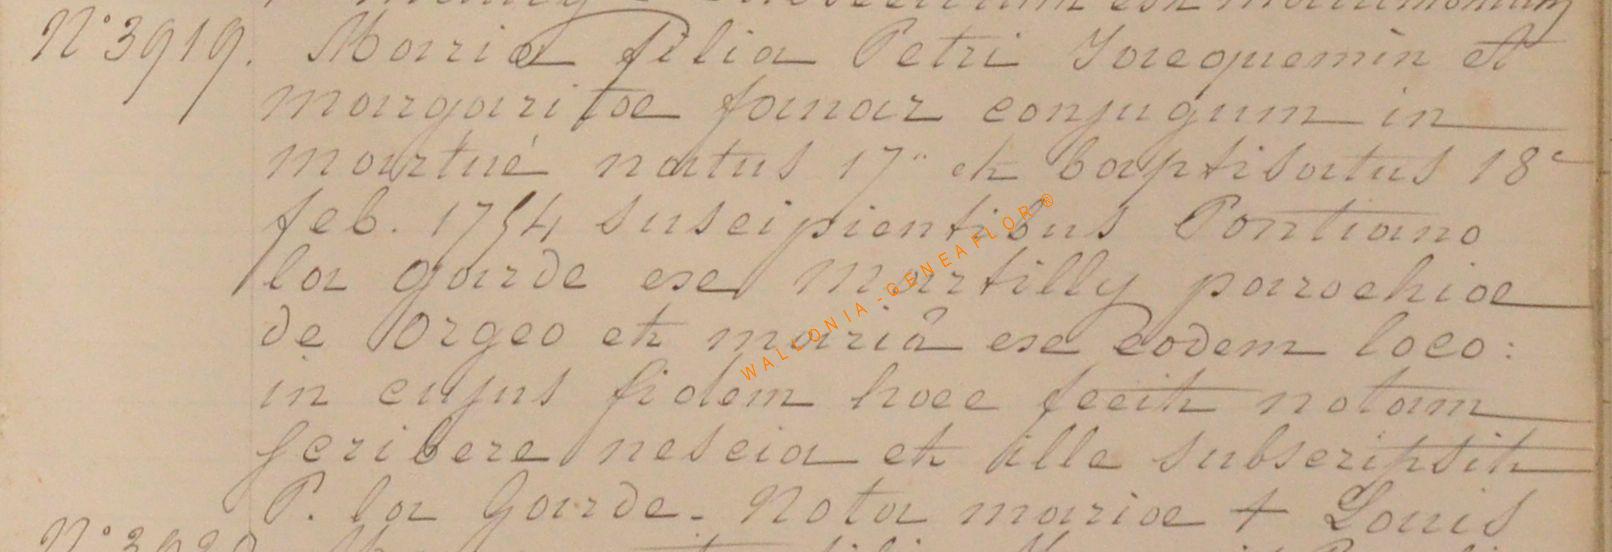 N° 3919. Maria filia Petri Jacquemin et
margaritae fanar conjugum in
martué natus 17a et baptisatus 18a
feb. 1754 suscipientibus Pontiano
la garde ex Martilly parochiae
de Orgeo et mariâ ex eodem loco:
in cujus fidem haec fecit notam
scribere nescia et ille subscripsit
P. la Garde. Nota mariae + Louis
WALLONIA-GENEAFLOR®
N° 3920